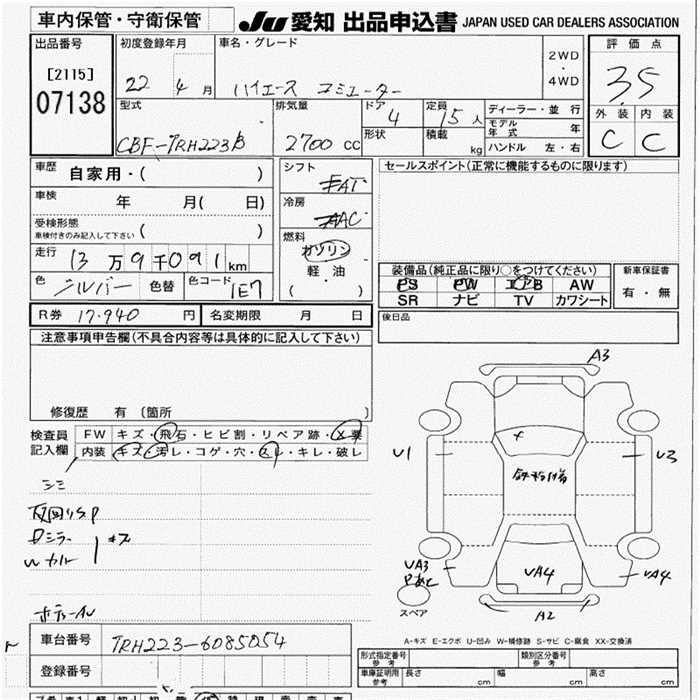 車内保管・守衛保管
JU 愛知 出品申込書 JAPAN USED CAR DEALERS ASSOCIATION
出品番号
[2115]
07138
初度登録年月
22 4 月
車名・グレード
ハイエース コミューター
2WD
・
4WD
評価点
3.5
外装 内装
C C
型式
CBF-TRH223B
排気量
2700 cc
ドア
4
形状
定員
15 人
積載
kg
ディーラー・並行
モデル年式 年
ハンドル 左・右
車歴
自家用・( )
車検
年 月( 日)
受検形態
車検付きのみ記入して下さい ( )
走行
13 万 9 千 091 km
色
シルバー
色替
色コード
1E7
シフト
FAT
冷房
AAC
燃料
ガソリン
・
軽・油
( )
セールスポイント(正常に機能するものに限ります)
装備品(純正品に限り○をつけてください)
PS PW エアB AW
SR ナビ TV カワシート
新車保証書
有・無
後日品
R券 17.940 円
名変期限 月 日
注意事項申告欄(不具合内容等は具体的に記入して下さい)
修復歴 有 〔箇所 〕
検査員記入欄
FW キズ・飛石・ヒビ割・リペア跡・X要
内装 キズ・汚レ・コゲ・穴・スレ・キレ・破レ
シミ
キズ
A3
U1
U3
UA3
UA4
UA4
A2
スペア
A-キズ E-エクボ U-凹み W-補修跡 S-サビ C-腐食 XX-交換済
車台番号
TRH223-6085054
登録番号
形式指定番号
参考
類別区分番号
参考
車庫証明用
参考
長さ cm 幅 cm 高さ cm